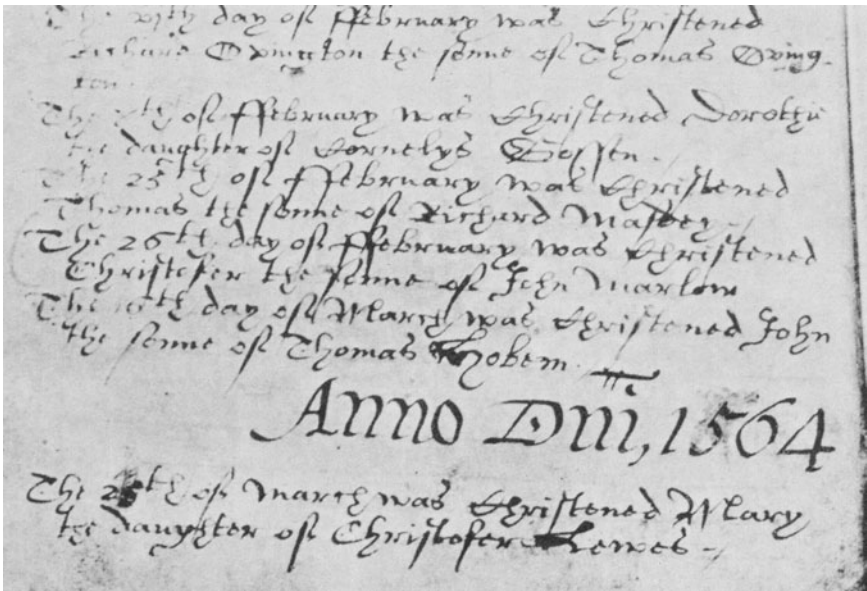 The day of ffebruary was Christened
Richard Ovington the sonne of Thomas Oving-
ton.
The th of ffebruary was Christened Dorothy
the daughter of Cornelys Gossen.
The 25th of ffebruary was Christened
Thomas the sonne of Richard Masbey
The 26th day of ffebruary was Christened
Christofer the sonne of John Marlow
The th day of March was Christened John
the sonne of Thomas
Anno Dni, 1564
The of March was Christened Mary
the daughter of Christofer Lewes